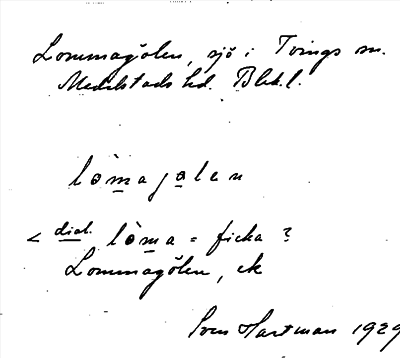 Lommagölen, sjö i Tvings sn.
Medelstads hd. Blek.l.
lòmagølen
< dial. lòma = ficka ?
Lommagölen, ek
Sven Hartman 1929